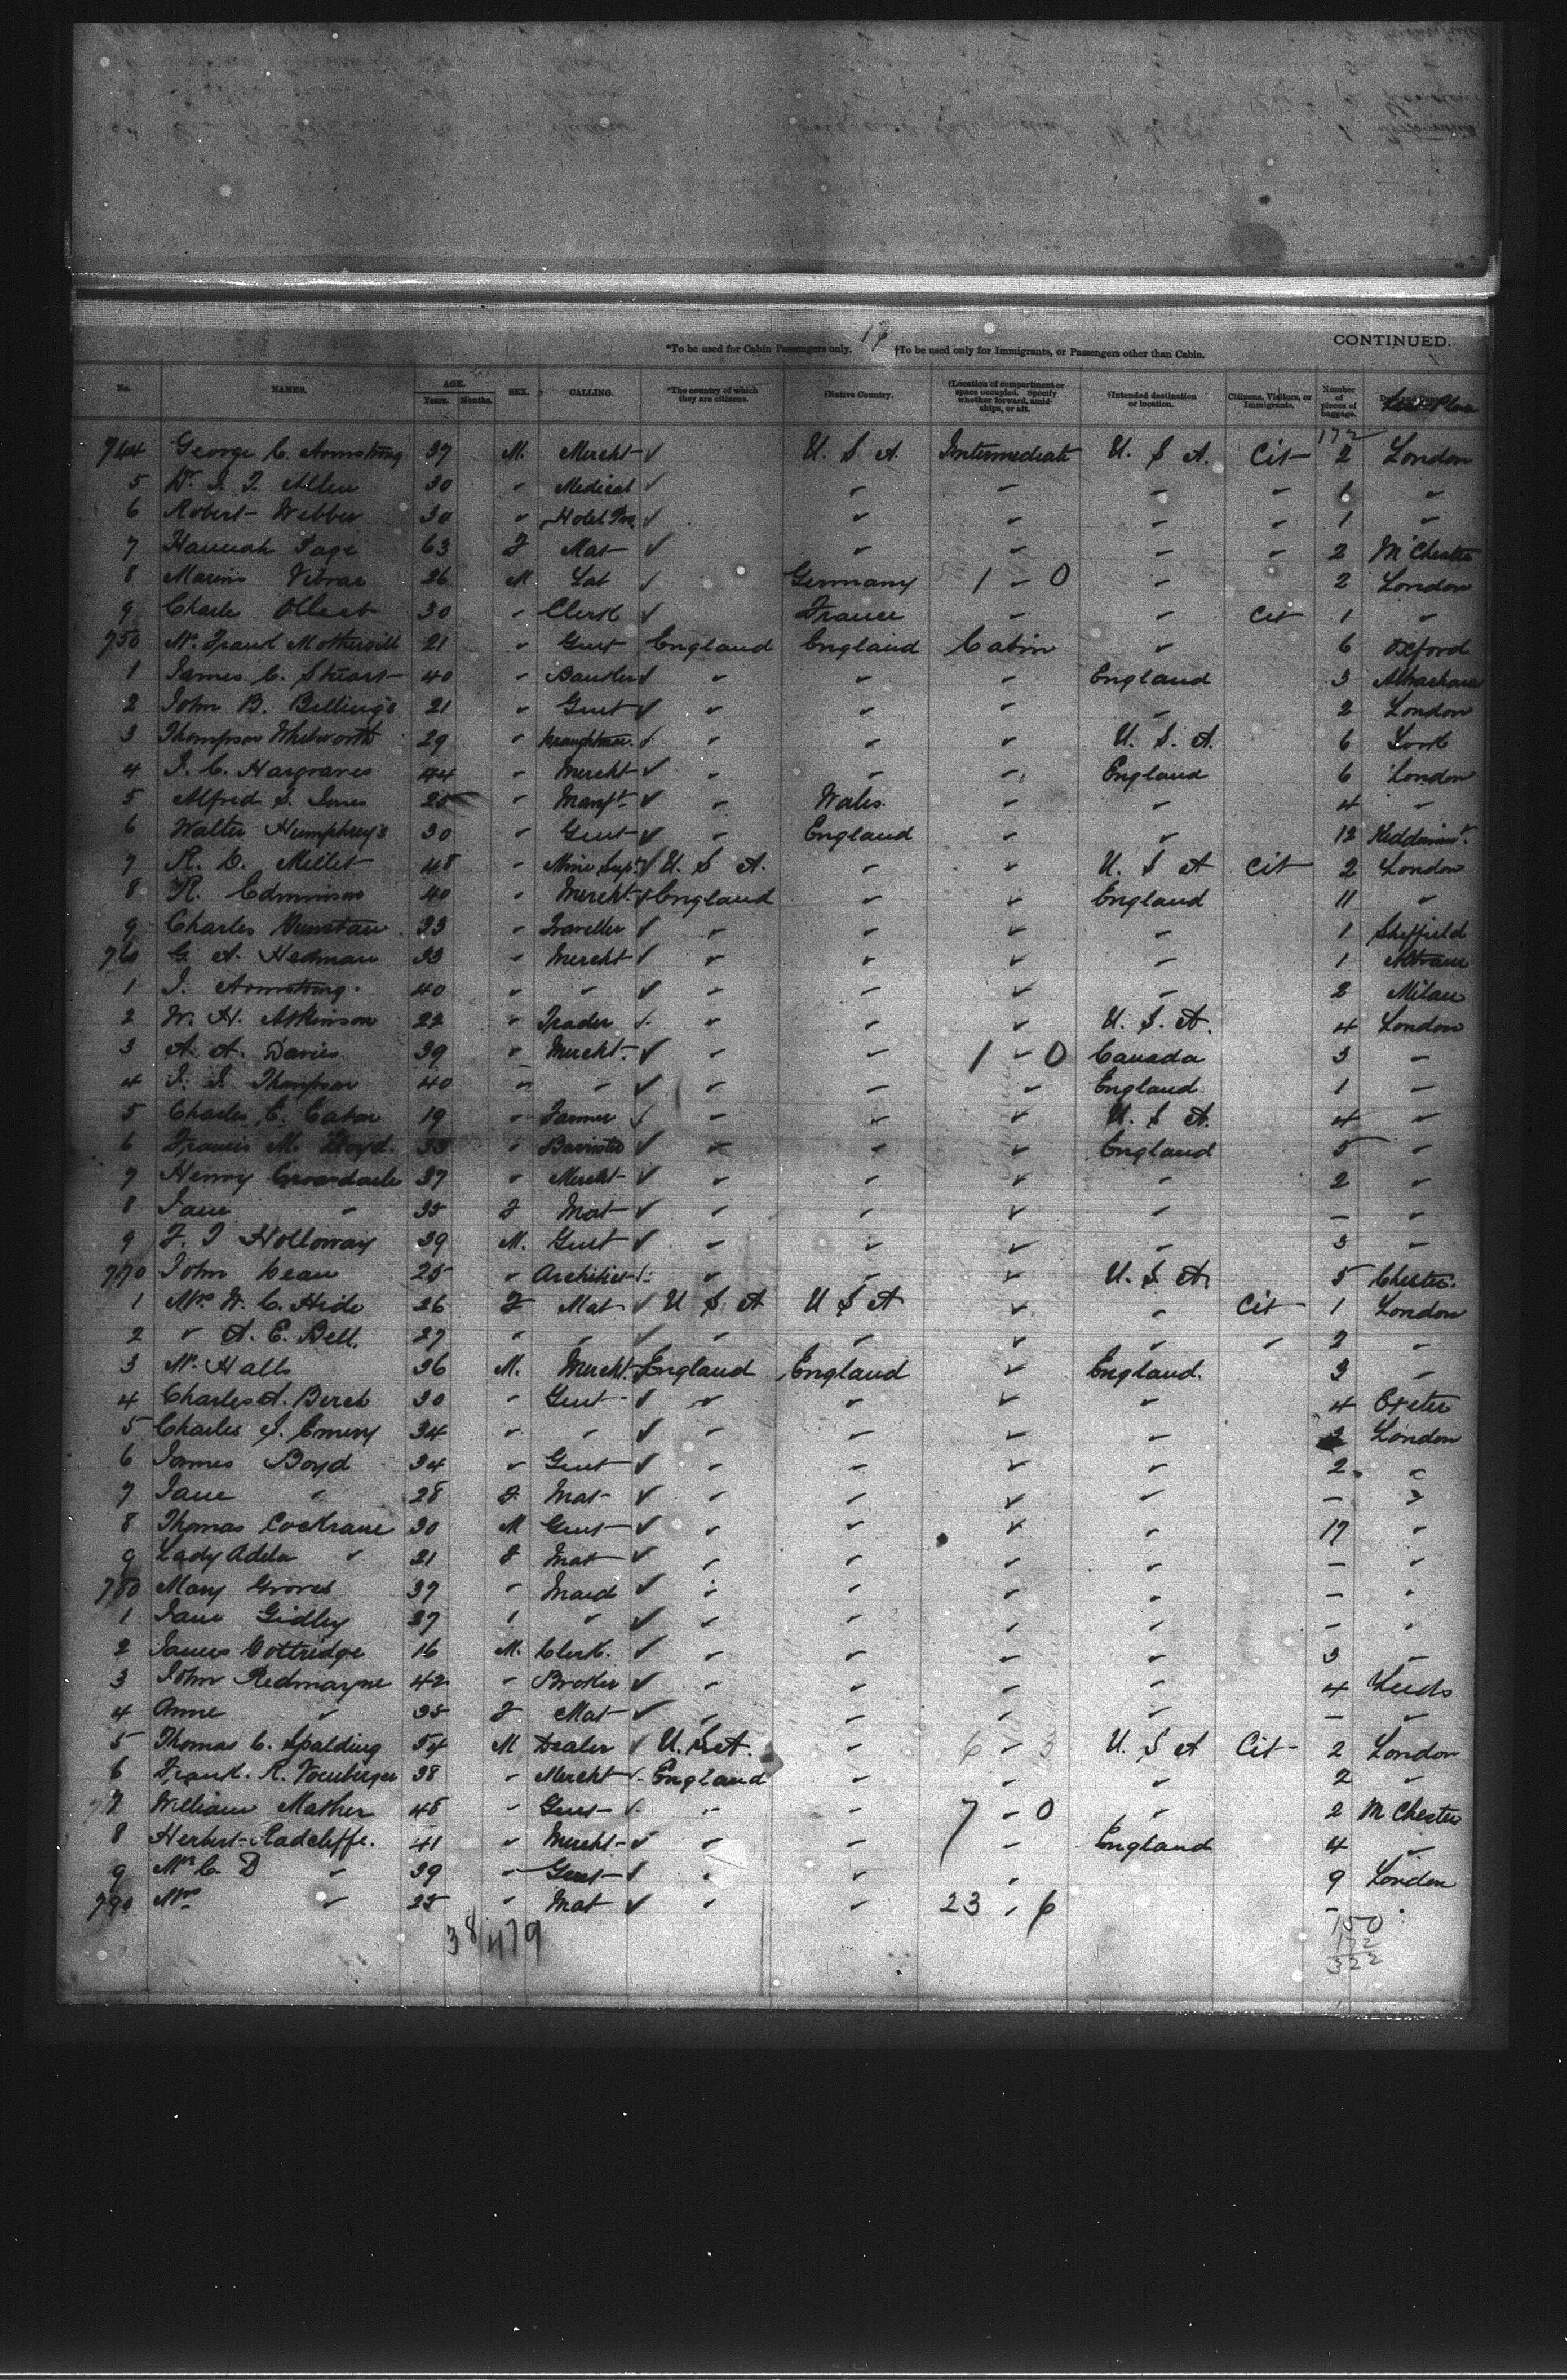 19
*To be used for Cabin Passengers only. †To be used only for Immigrants, or Passengers other than Cabin. CONTINUED.
No. NAMES. AGE. Years. Months. SEX. CALLING. *The country of which they are citizens. †Native Country. †Location of compartment or space occupied. Specify whether forward, amidships, or aft. †Intended destination or location. Citizens, Visitors, or Immigrants. Number of pieces of baggage. Last Place
172
744 George C. Armstrong 37 M. Mercht ✓ U. S. A. Intermediate U. S. A. Cit 2 London
5 Dr. J. J. Allen 30 " Medical ✓ " " " " 1 "
6 Robert Webber 30 " Hotel ✓ " " " " 1 "
7 Hannah Page 63 F Mat ✓ " " " " 2 M'Chester
8 Marins 26 M. Lab ✓ Germany 1 - 0 " 2 London
9 Charle 30 " Clerk ✓ France " " Cit 1 "
750 Mr. Frank Mothersill 21 " Gent England England Cabin " 6 Oxford
1 James C. Stuart 40 " Banker ✓ " " " England 3
2 John B. Billings 21 " Gent ✓ " " " " 2 London
3 Thompson Whitworth 29 " Draughtsman ✓ " " " U. S. A. 6
4 J. C. Hargraves 44 " Mercht ✓ " " " England 6 London
5 Alfred S. Jones 25 " Manft. ✓ " Wales " " 4 "
6 Walter Humphreys 30 " Gent ✓ " England " " 12
7 R. D. Millet 48 " Mine Supt. ✓ U. S. A. " " U. S. A Cit 2 London
8 R. Edminson 40 " Mercht. ✓ England " " England 11 "
9 Charles Dunstan 33 " Traveller ✓ " " " " 1 Sheffield
760 G. A. Hedman 33 " Mercht ✓ " " " " 1
1 J. Armstrong. 40 " " ✓ " " " " 2 Milan
2 W. H. Atkinson 22 " Trader ✓ " " " U. S. A. 4 London
3 A. A. Davies 39 " Mercht. ✓ " " 1 - 0 Canada 3 "
4 J. J. Thompson 40 " " ✓ " " " England 1 "
5 Charles E. Caton 19 " Farmer ✓ " " " U. S. A. 4 "
6 Francis M. Lloyd. 33 " Barrister ✓ " " " England 5 "
7 Henry Croasdale 37 " Mercht ✓ " " " " 2 "
8 Jane " 35 F Mat ✓ " " " " - "
9 F. J Holloway 39 M. Gent ✓ " " " " 3 "
770 John Dean 25 " Architect ✓ " " " U. S. A. 5 Chester.
1 Mrs W. C. Hide 26 F Mat ✓ U S A U S A " " Cit 1 London
2 " A. E. Bell. 27 " " ✓ " " " " " 2 "
3 Mr. Halls 36 M. Mercht. England England " England. 3 "
4 Charles A. Berch 30 " Gent ✓ " " " " 4 Exeter
5 Charles J. Emery 34 " " ✓ " " " " London
6 James Boyd 34 " Gent ✓ " " " " 2 "
7 Jane " 28 F. Mat ✓ " " " " - "
8 Thomas Cochrane 30 M Gent ✓ " " " " 17 "
9 Lady Adela " 21 F Mat ✓ " " " " - "
780 Mary Groves 37 " Maid ✓ " " " " - "
1 Jane Gidley 37 " " ✓ " " " " - "
2 James Gottridge 16 M. Clerk. ✓ " " " " 3 "
3 John Redmayne 42 " Broker ✓ " " " " 4 Leeds
4 Anne " 35 F. Mat ✓ " " " " - "
5 Thomas C. Spalding 54 M Dealer ✓ U. S. A. " 6 - 3 U. S A Cit 2 London
6 Frank. R. 38 " Mercht ✓ England " " 2 "
7 William Mather 48 " Gent ✓ " " 7 - 0 " 2 M Chester
8 Herbert Radcliffe. 41 " Mercht ✓ " " " England 4 "
9 Mr C. D " 39 " Gent ✓ " " " 9 London
790 Mrs " 25 " Mat ✓ " " 23 - 6 - "
38/479
150
172
322